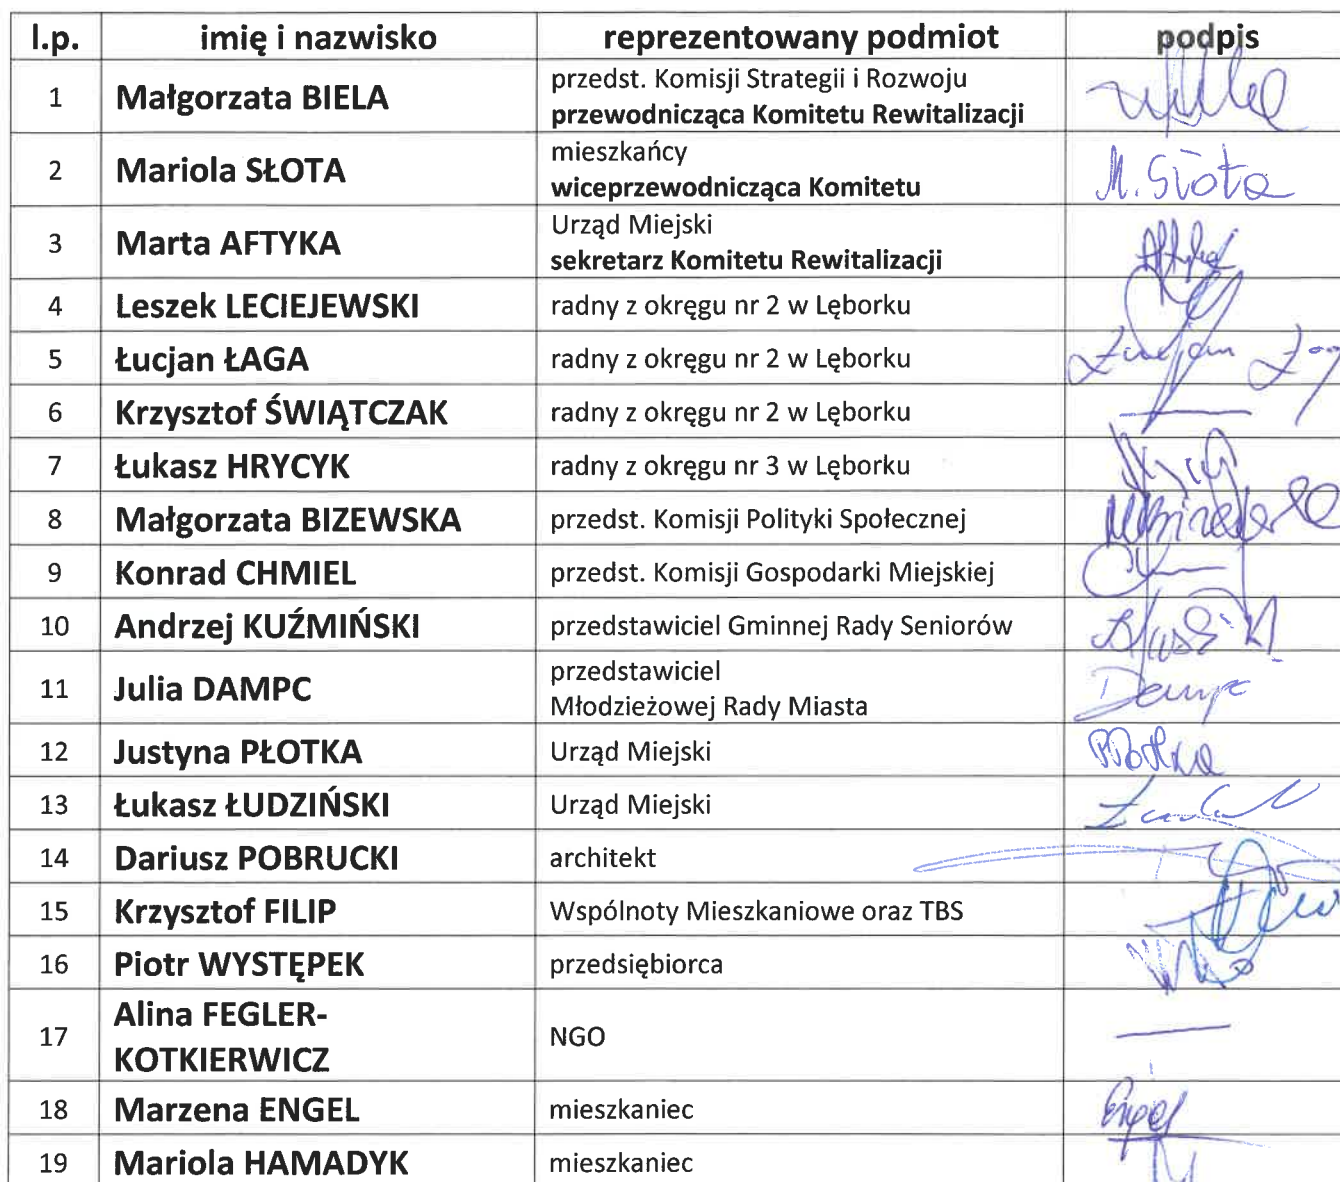 l.p. imię i nazwisko reprezentowany podmiot podpis
1 Małgorzata BIELA przedst. Komisji Strategii i Rozwoju
przewodnicząca Komitetu Rewitalizacji
2 Mariola SŁOTA mieszkańcy M. Słota
wiceprzewodnicząca Komitetu
3 Marta AFTYKA Urząd Miejski Aftyka
sekretarz Komitetu Rewitalizacji
4 Leszek LECIEJEWSKI radny z okręgu nr 2 w Lęborku
5 Łucjan ŁAGA radny z okręgu nr 2 w Lęborku Łucjan Łaga
6 Krzysztof ŚWIĄTCZAK radny z okręgu nr 2 w Lęborku
7 Łukasz HRYCYK radny z okręgu nr 3 w Lęborku
8 Małgorzata BIZEWSKA przedst. Komisji Polityki Społecznej
9 Konrad CHMIEL przedst. Komisji Gospodarki Miejskiej
10 Andrzej KUŹMIŃSKI przedstawiciel Gminnej Rady Seniorów
11 Julia DAMPC przedstawiciel Dampc
Młodzieżowej Rady Miasta
12 Justyna PŁOTKA Urząd Miejski Płotka
13 Łukasz ŁUDZIŃSKI Urząd Miejski
14 Dariusz POBRUCKI architekt
15 Krzysztof FILIP Wspólnoty Mieszkaniowe oraz TBS
16 Piotr WYSTĘPEK przedsiębiorca
17 Alina FEGLER-
KOTKIERWICZ NGO
18 Marzena ENGEL mieszkaniec Engel
19 Mariola HAMADYK mieszkaniec